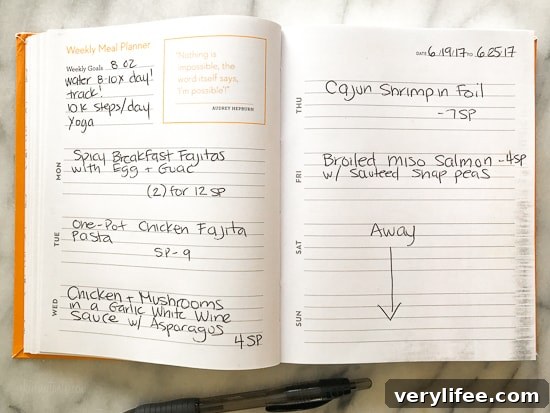 Weekly Meal Planner
Weekly Goals 8 oz
water 8-10x day!
track!
10K steps/day
Yoga
"Nothing is
impossible, the
word itself says,
'I'm possible!'"
AUDREY HEPBURN
MON
Spicy Breakfast Fajitas
with Egg + Guac
(2) for 12 SP
TUE
One-Pot Chicken Fajita
Pasta
SP-9
WED
Chicken + Mushrooms
in a Garlic White Wine
Sauce w/ Asparagus
4 SP
DATE 6/19/17 TO 6/25/17
THU
Cajun Shrimp in Foil
-7SP
FRI
Broiled Miso Salmon -4SP
w/ Sauteed snap peas
SAT
Away
SUN
verylifee.com